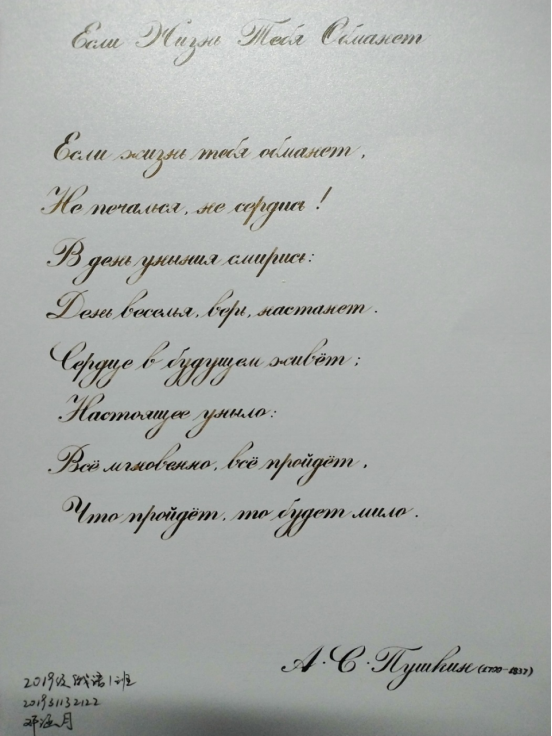 Если Жизнь Тебя Обманет
Если жизнь тебя обманет,
Не печалься, не сердись!
В день уныния смирись:
День веселья, верь, настанет.
Сердце в будущем живёт;
Настоящее уныло:
Всё мгновенно, всё пройдёт,
Что пройдёт, то будет мило.
А·С·Пушкин
2019级俄语1班
201931132122
邓 月